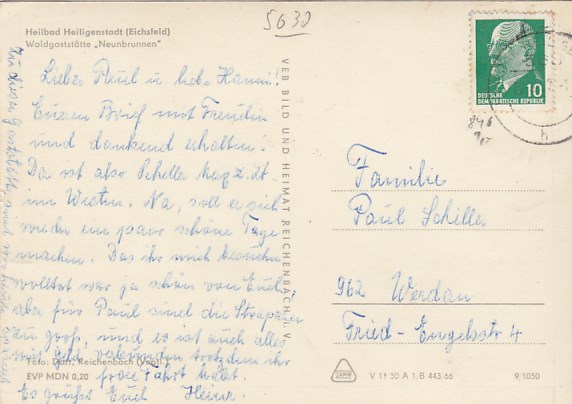 5630
Heilbad Heiligenstadt (Eichsfeld)
Waldgaststätte „Neunbrunnen"
Zu dieser Gaststätte sind wir heute
Lieber Paul u liebe Hanni!
Eueren Brief mit Freuden
und dankend erhalten.
Da ist also Scheller z. Zt.
im Westen. Na, soll er sich
wieder ein paar schöne Tage
machen. Das ihr mich besuchen
wolltet war ja schön von Euch,
aber für Paul sind die Strapazen
zu groß, und es ist auch alles
mit Geld verbunden trotzdem ihr
freie Fahrt habt.
Es grüßt Euch Heinr.
Foto: Darr, Reichenbach (Vogtl)
EVP MDN 0,20
VEB BILD UND HEIMAT REICHENBACH i. V.
DEUTSCHE
DEMOKRATISCHE REPUBLIK
10
846
h
Familie
Paul Schiller
962 Werdau
Fried-Engelsstr 4
V 11 50 A 1/B 443/66
9/1050